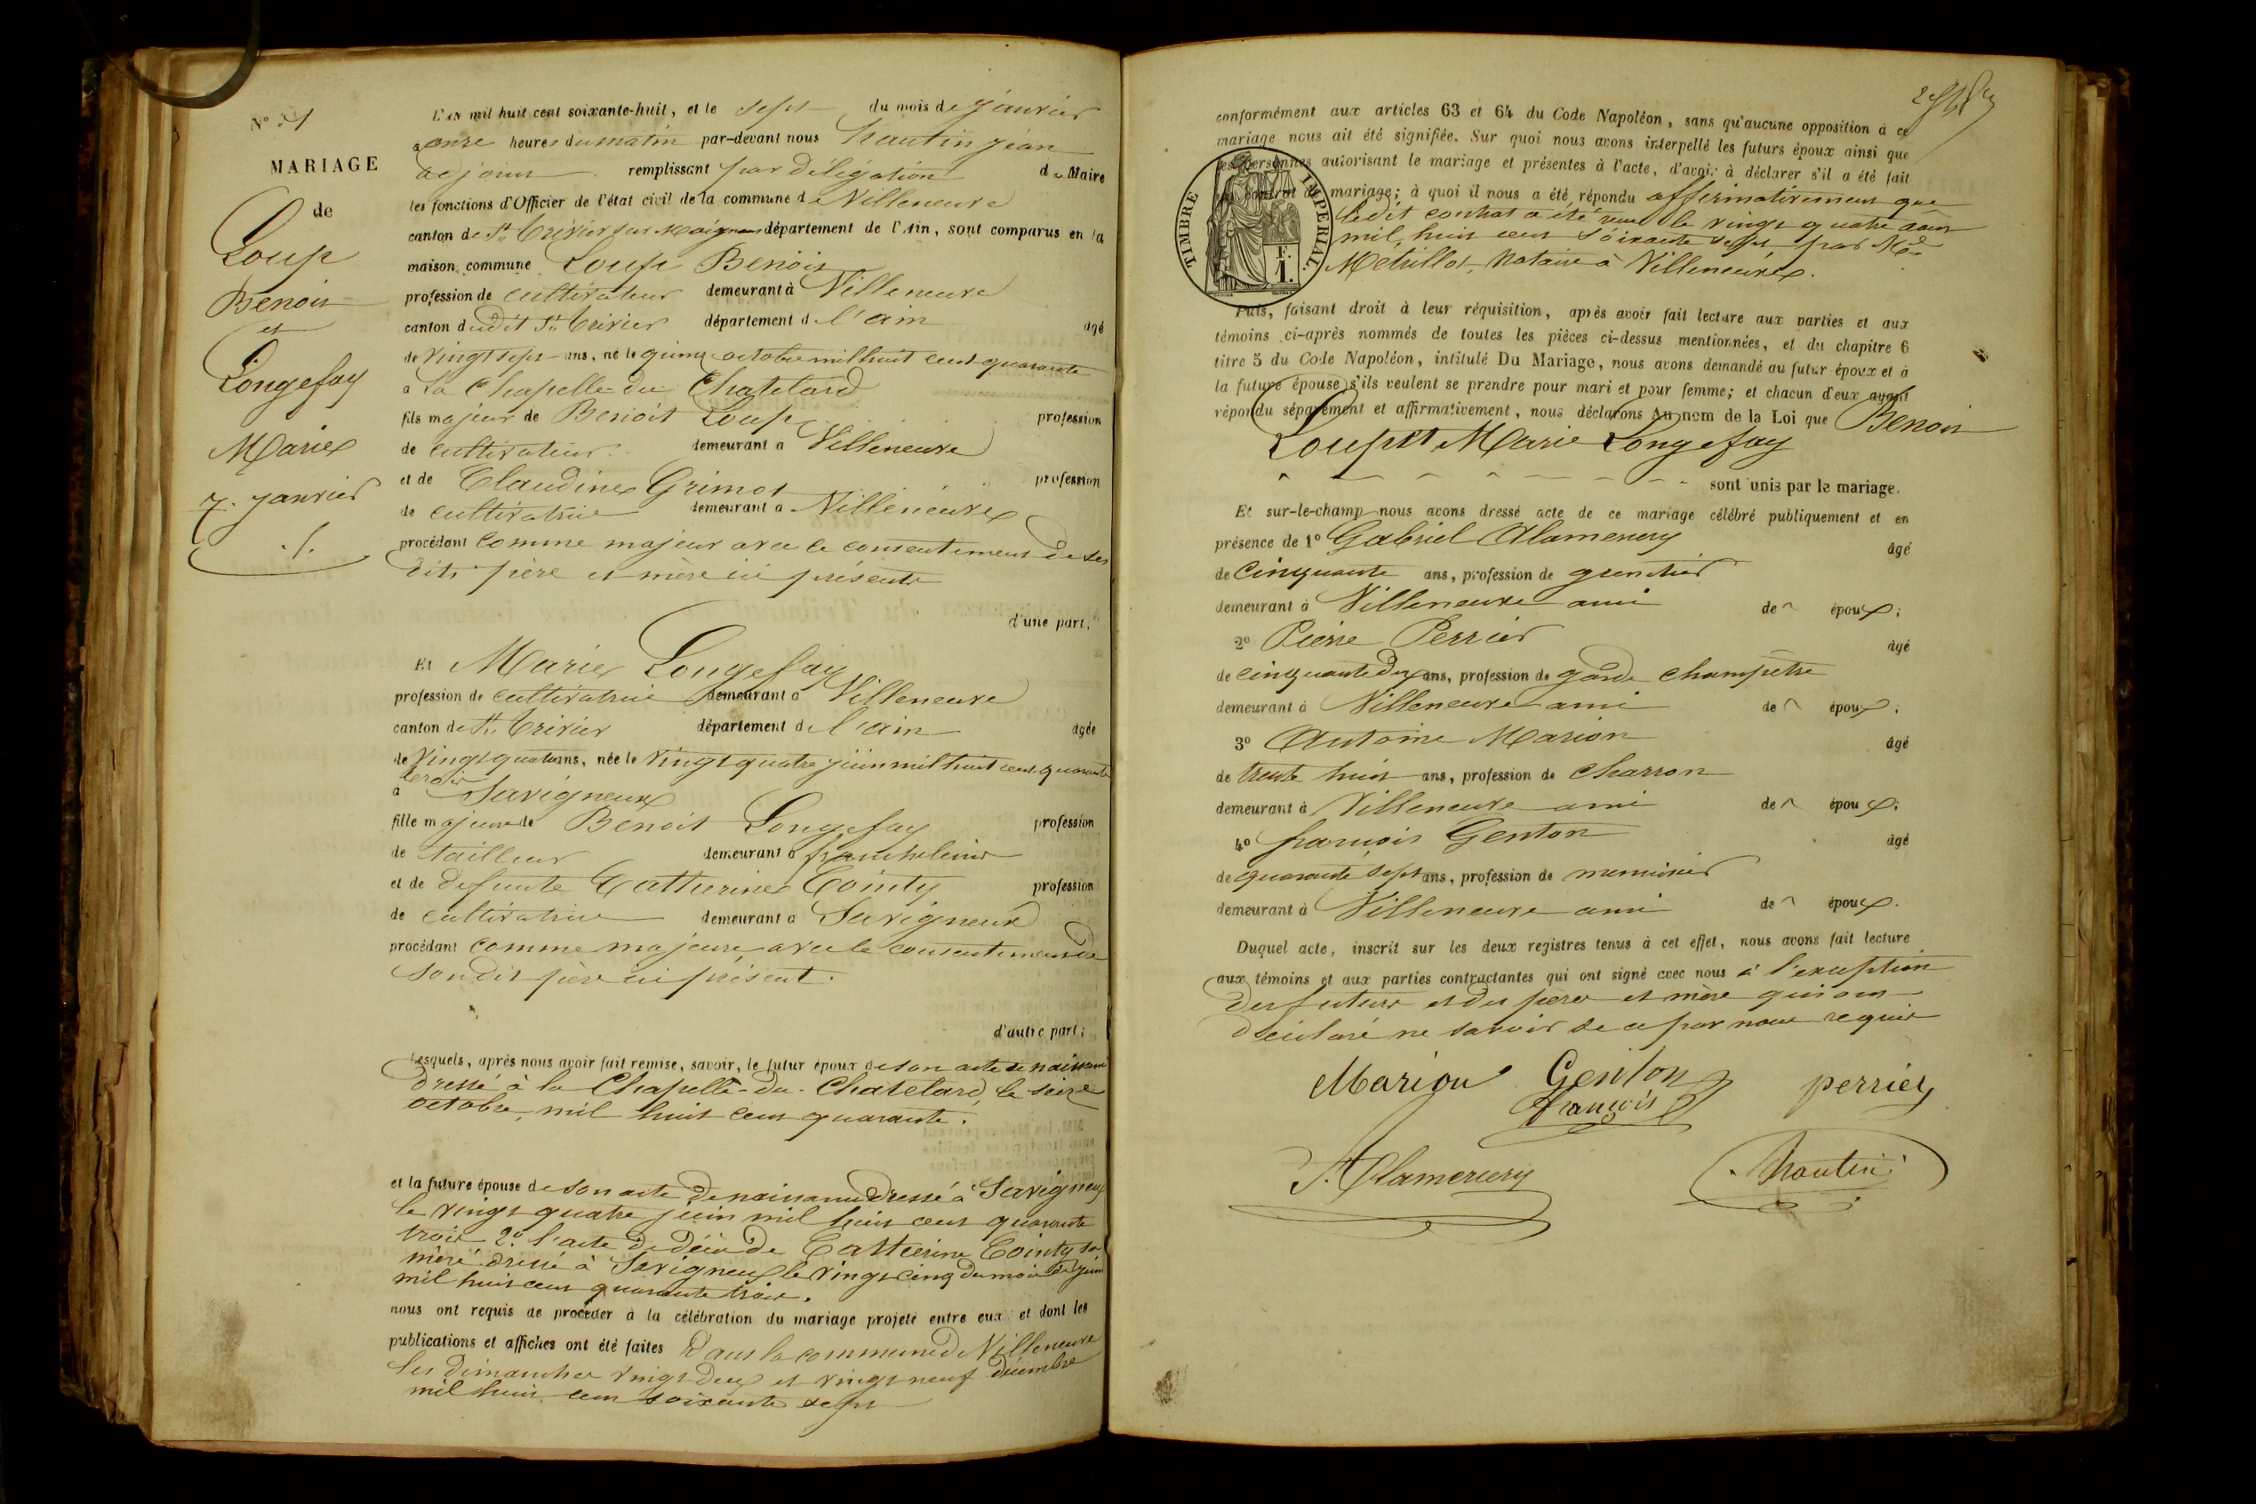 N° 1
MARIAGE
de
Loup
Benoit
et
Longefay
Marie
7. janvier
L'AN mil huit cent soixante-huit, et le sept du mois de janvier
à onze heures du matin par-devant nous hautin jean
adjoint remplissant par délégation du Maire
les fonctions d'Officier de l'état civil de la commune de Villeneuve
canton de St. Trivier sur Moignans département de l'Ain, sont comparus en la
maison commune Loup Benoit
profession de cultivateur demeurant à Villeneuve
canton dudit St. Trivier département de l'ain âgé
de vingt sept ans, né le quinze octobre mil huit cent quarante
à La Chapelle du Chatelard
fils majeur de Benoit Loup profession
de cultivateur demeurant à Villeneuve
et de Claudine Grimot profession
de cultivatrice demeurant à Villeneuve
procédant comme majeur avec le consentement de ses
dits père et mère ici présents
d'une part;
Et Marie Longefay
profession de cultivatrice demeurant à Villeneuve
canton de St. Trivier département de l'ain âgée
de vingt quatre ans, née le vingt quatre juin mil huit cent quarante
trois
à Savigneux
fille majeure de Benoit Longefay profession
de tailleur demeurant à francheleins
et de defunte Catherine Cointy profession
de cultivatrice demeurant à Savigneux
procédant comme majeure avec le consentement de
son dit père ici présent.
d'autre part;
Lesquels, après nous avoir fait remise, savoir, le futur époux de son acte de naissance
dressé à la Chapelle-du-Chatelard, le seize
octobre, mil huit cent quarante.
et la future épouse de son acte de naissance dressé à Savigneux
le vingt quatre juin mil huit cent quarante
trois 2° l'acte de décès de Catherine Cointy sa
mère dressé à Savigneux le vingt cinq du mois de juin
mil huit cent quarante trois.
nous ont requis de procéder à la célébration du mariage projeté entre eux et dont les
publications et affiches ont été faites dans la commune de Villeneuve
les dimanches vingt deux et vingt neuf décembre
mil huit cent soixante sept
conformément aux articles 63 et 64 du Code Napoléon, sans qu'aucune opposition à ce
mariage nous ait été signifiée. Sur quoi nous avons interpellé les futurs époux ainsi que
les personnes autorisant le mariage et présentes à l'acte, d'avoir à déclarer s'il a été fait
un contrat de mariage; à quoi il nous a été répondu affirmativement que
ledit contrat a été reçu le vingt quatre août
mil, huit cent soixante sept par Me
Notaire à Villeneuve.
TIMBRE IMPÉRIAL.
F.
1.
Puis, faisant droit à leur réquisition, après avoir fait lecture aux parties et aux
témoins ci-après nommés de toutes les pièces ci-dessus mentionnées, et du chapitre 6
titre 5 du Code Napoléon, intitulé Du Mariage, nous avons demandé au futur époux et à
la future épouse s'ils veulent se prendre pour mari et pour femme; et chacun d'eux ayant
répondu séparément et affirmativement, nous déclarons Au nom de la Loi que Benoit
Loup et Marie Longefay
sont unis par le mariage.
Et sur-le-champ nous avons dressé acte de ce mariage célébré publiquement et en
présence de 1° Gabriel Alamercery âgé
de cinquante ans, profession de
demeurant à Villeneuve ami de époux;
2° Pierre Perrier âgé
de cinquante deux ans, profession de garde champêtre
demeurant à Villeneuve ami de époux;
3° Antoine Marion âgé
de trente huit ans, profession de charron
demeurant à Villeneuve ami de époux;
4° françois Genton âgé
de quarante sept ans, profession de menuisier
demeurant à Villeneuve ami de époux.
Duquel acte, inscrit sur les deux registres tenus à cet effet, nous avons fait lecture
aux témoins et aux parties contractantes qui ont signé avec nous à l'exception
des futurs et des père et mère qui ont
déclaré ne savoir de ce par nous requis
Marion Genton perrier
françois
Alamercery hautin